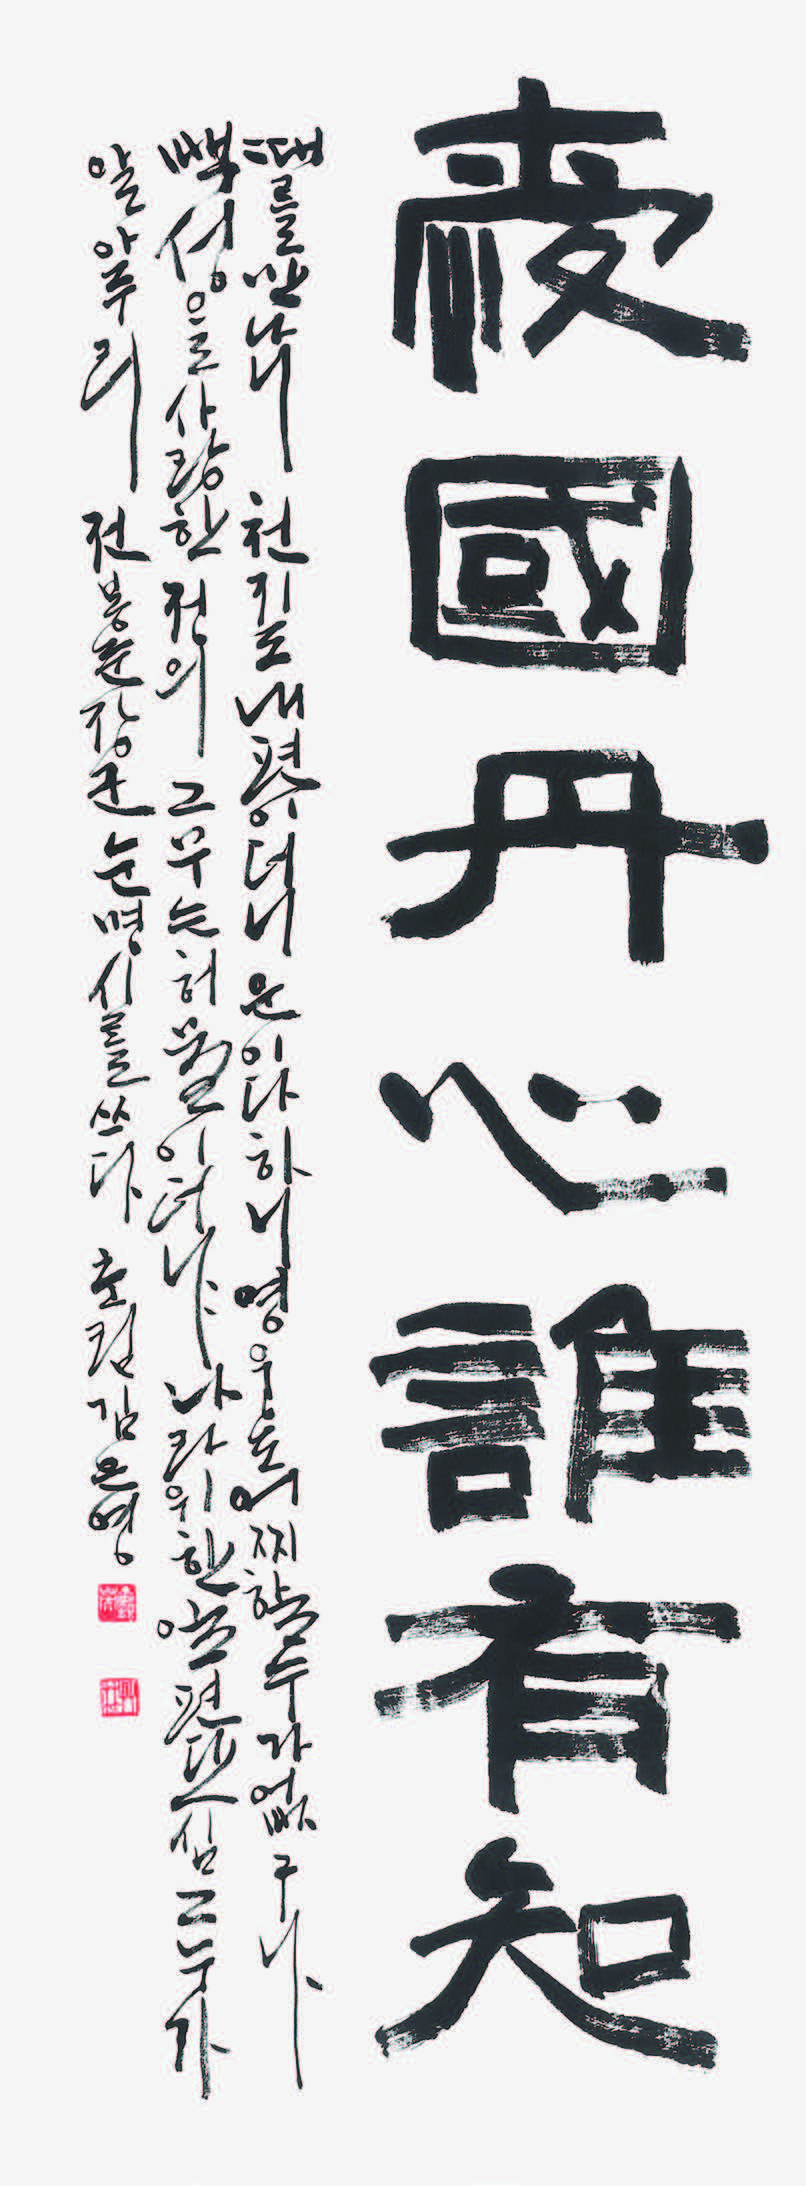 愛國丹心誰有知
때를만나니 천지도내편이더니 운이다하니 영웅도어찌할수가없구나
백성을사랑한 정의 그무슨허물이더냐 나라위한일편단심 그누가
알아주리 전봉준장군 운명시를쓰다 김은영